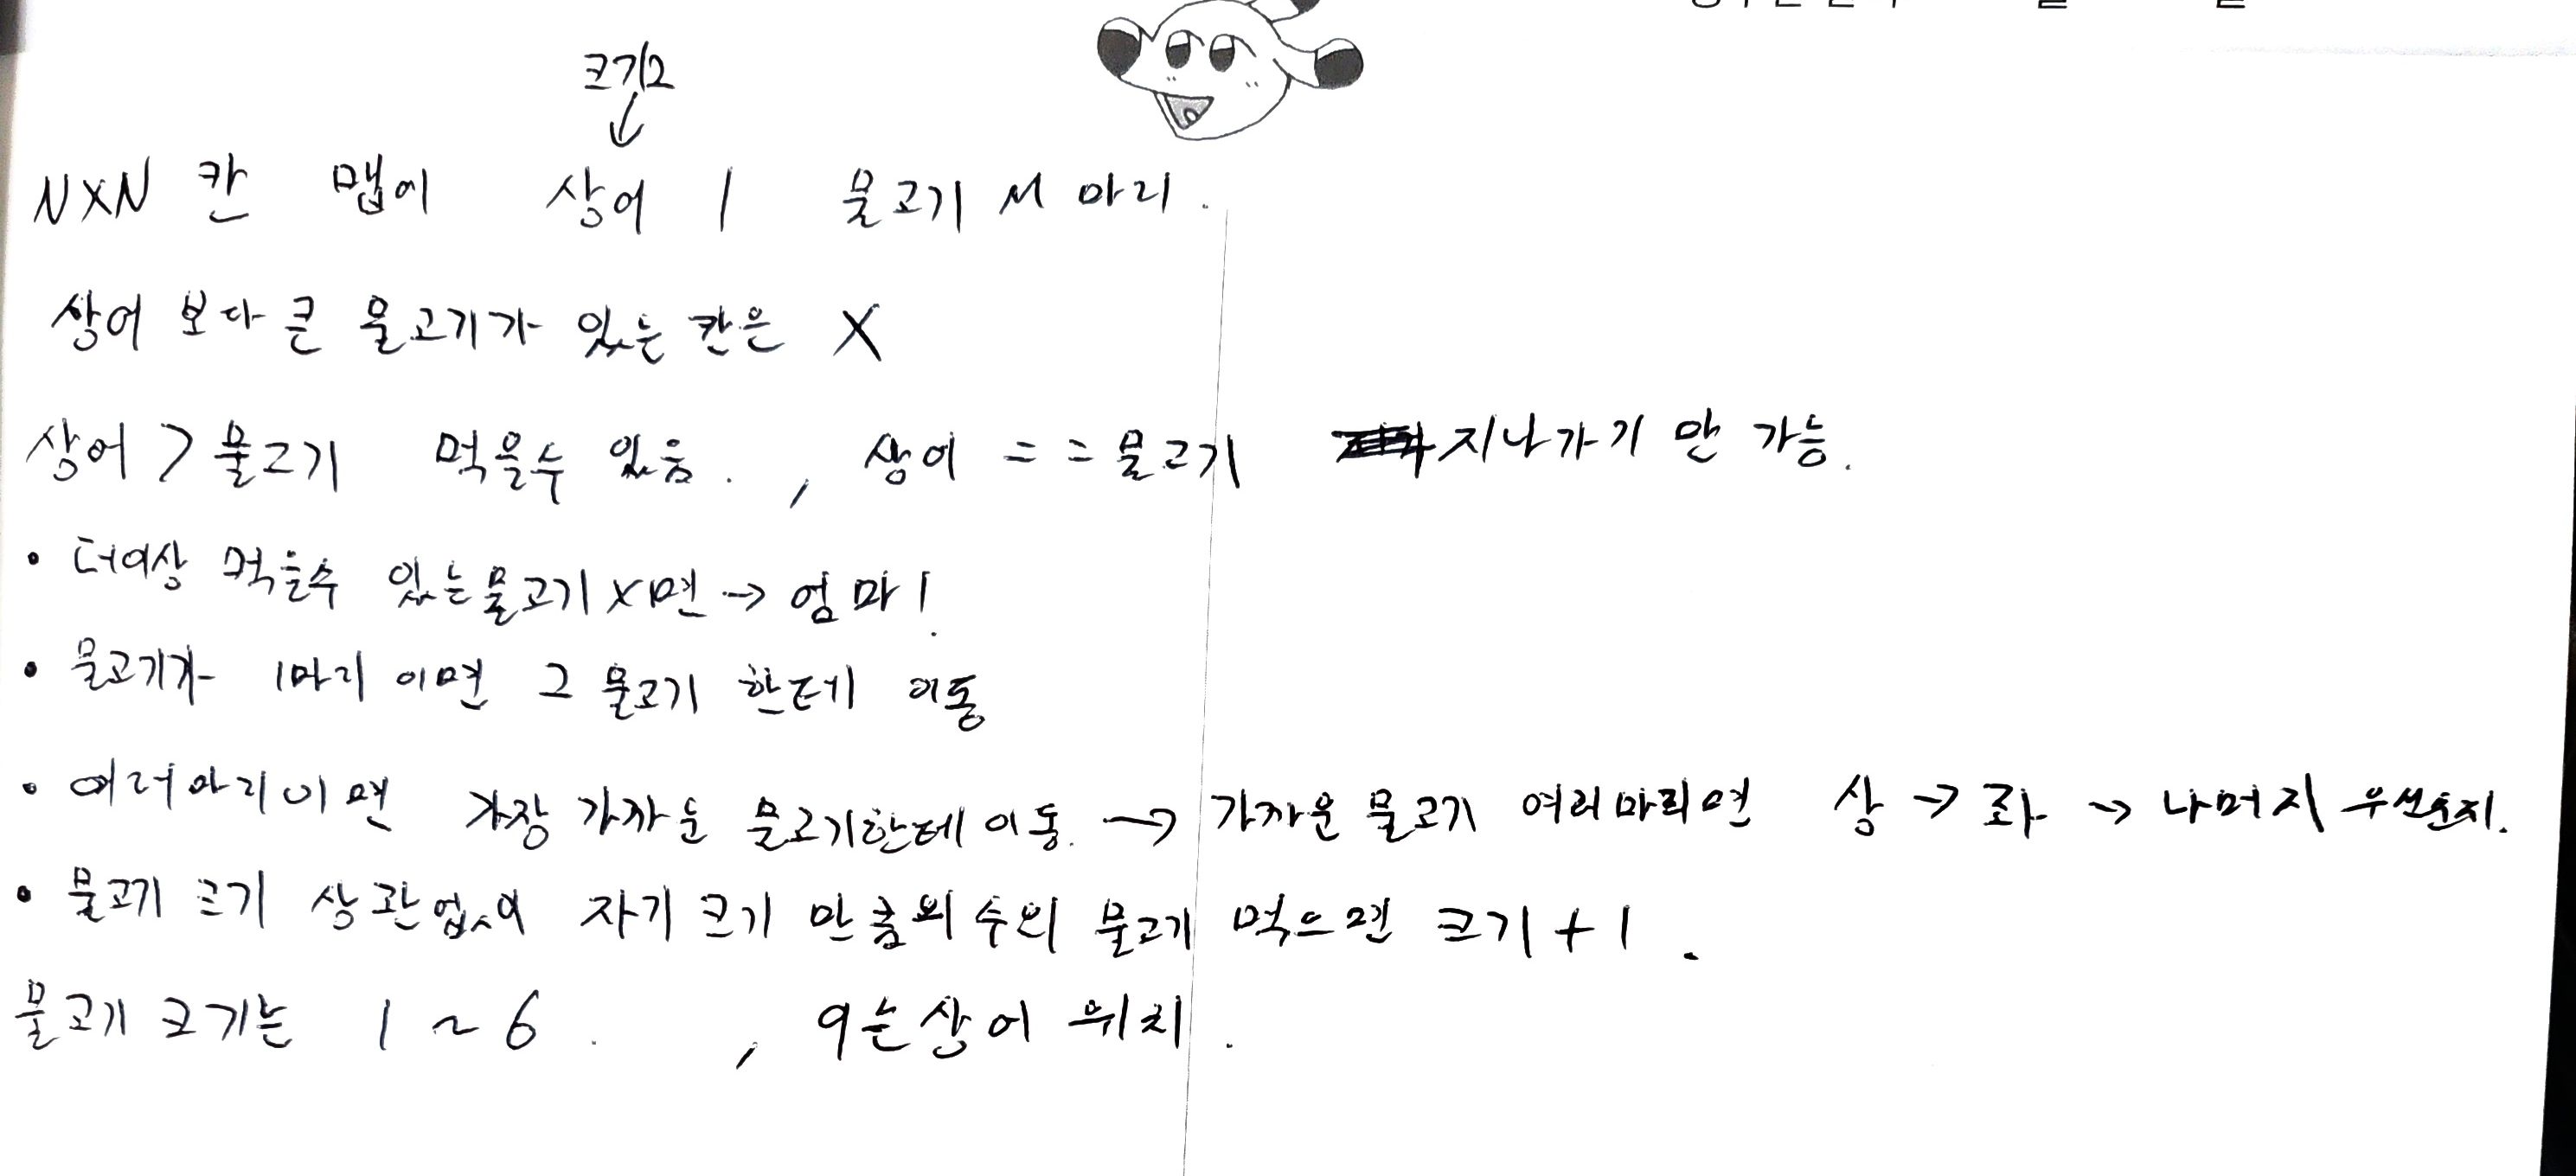 크기2
↓
NXN 칸 맵에 상어 1 물고기 M 마리.
상어 보다 큰 물고기가 있는 칸은 X
상어 > 물고기 먹을수 있음. , 상어 == 물고기 지나가기 만 가능.
• 더이상 먹을수 있는물고기 X면 → 엄마!
• 물고기가 1마리 이면 그 물고기 한테 이동
• 여러마리이면 가장 가까운 물고기한테 이동. → 가까운 물고기 여러마리면 상 → 좌 → 나머지 우선순위.
• 물고기 크기 상관없이 자기 크기 만큼의 수의 물고기 먹으면 크기 + 1.
물고기 크기는 1 ~ 6. , 9는 상어 위치.